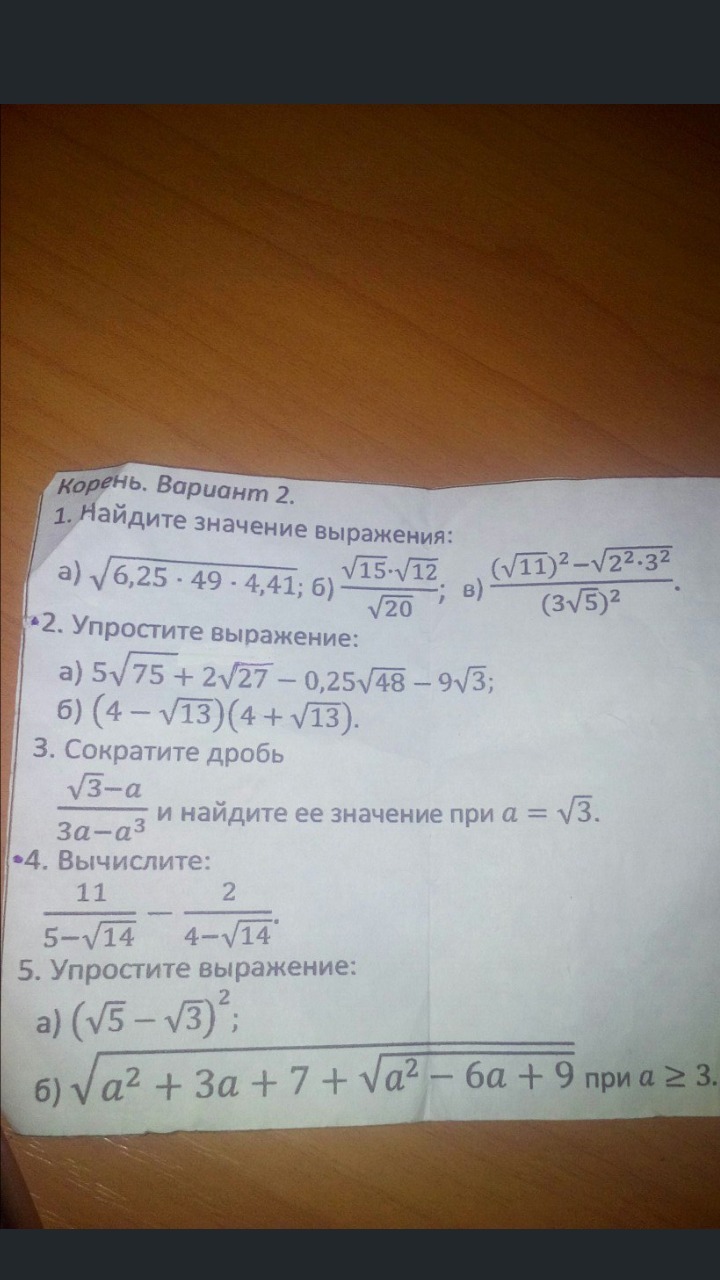 Корень. Вариант 2.
1. Найдите значение выражения:
а) √(6,25 · 49 · 4,41); б) (√15·√12)/√20; в) ((√11)²−√(2²·3²))/(3√5)².
2. Упростите выражение:
а) 5√75 + 2√27 − 0,25√48 − 9√3;
б) (4 − √13)(4 + √13).
3. Сократите дробь
(√3−a)/(3a−a³) и найдите ее значение при a = √3.
4. Вычислите:
11/(5−√14) − 2/(4−√14).
5. Упростите выражение:
а) (√5 − √3)²;
б) √(a² + 3a + 7 + √(a² − 6a + 9)) при a ≥ 3.